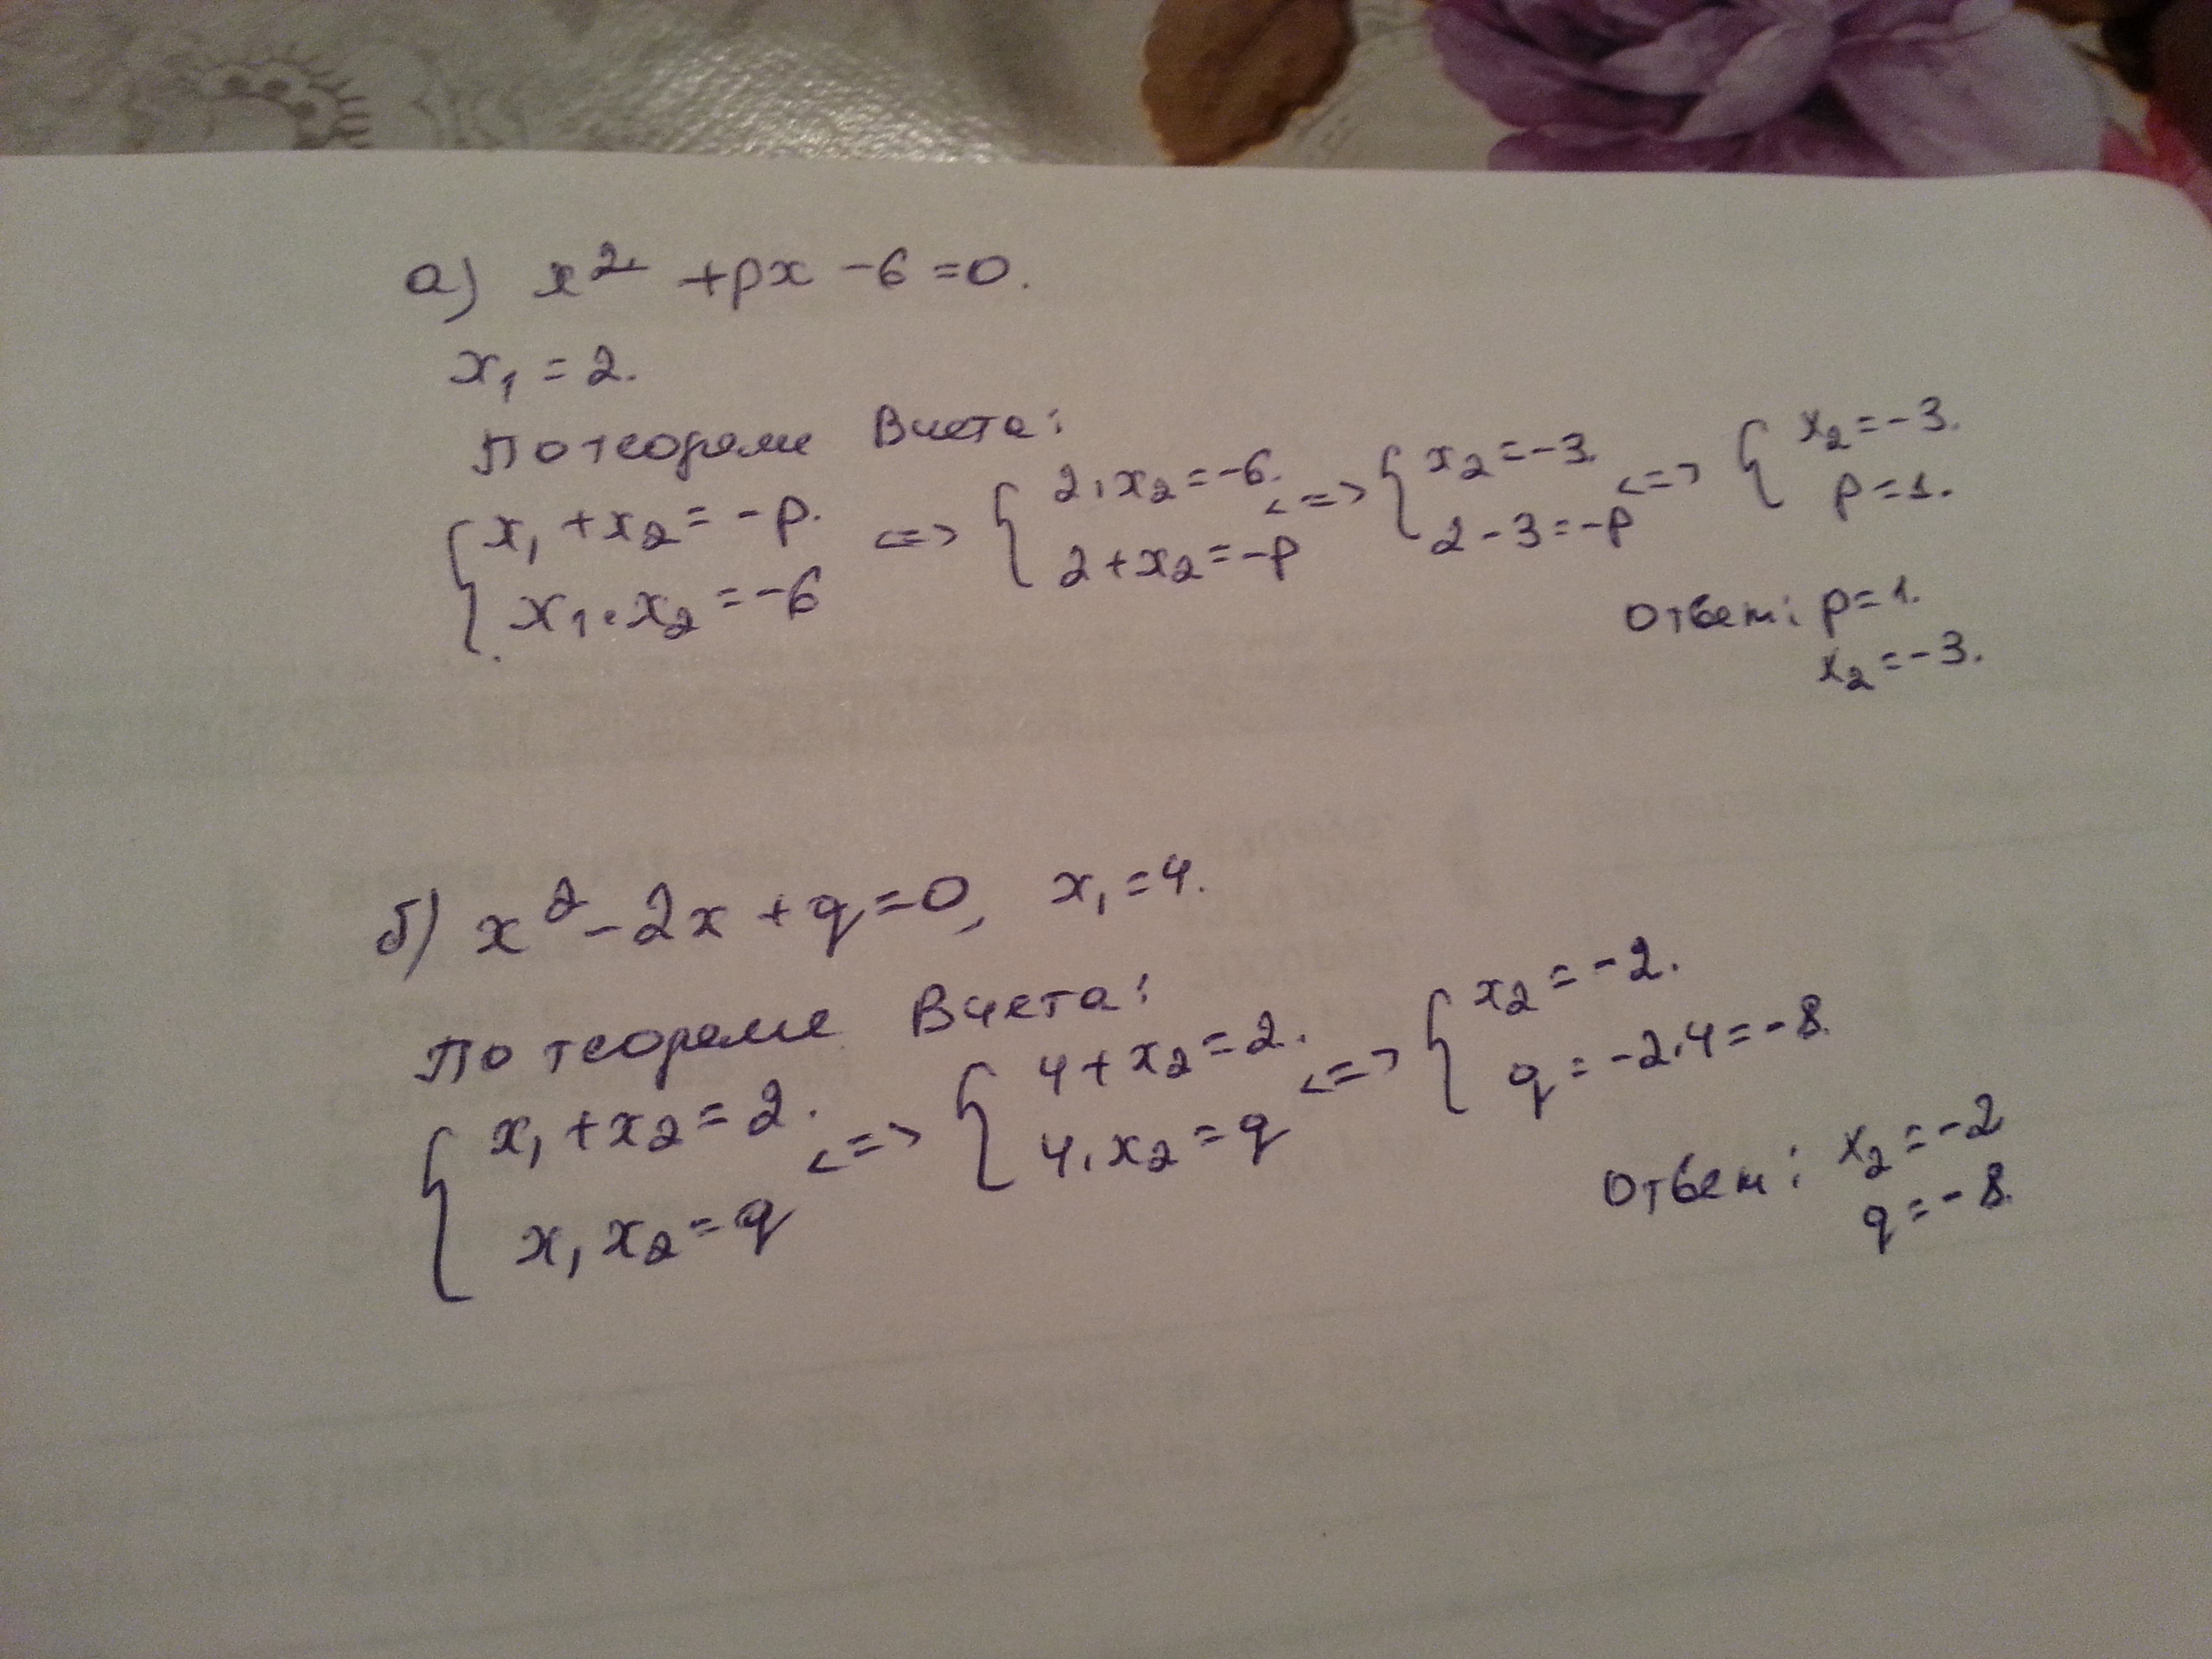 а) x² + px - 6 = 0.
x₁ = 2.
По теореме Виета:
{ x₁ + x₂ = -p. x₁ · x₂ = -6 <=> { 2 · x₂ = -6. 2 + x₂ = -p <=> { x₂ = -3. 2 - 3 = -p <=> { x₂ = -3. p = 1.
Ответ: p = 1.
x₂ = -3.
б) x² - 2x + q = 0, x₁ = 4.
По теореме Виета:
{ x₁ + x₂ = 2. x₁ x₂ = q <=> { 4 + x₂ = 2. 4 · x₂ = q <=> { x₂ = -2. q = -2 · 4 = -8.
Ответ: x₂ = -2
q = -8.